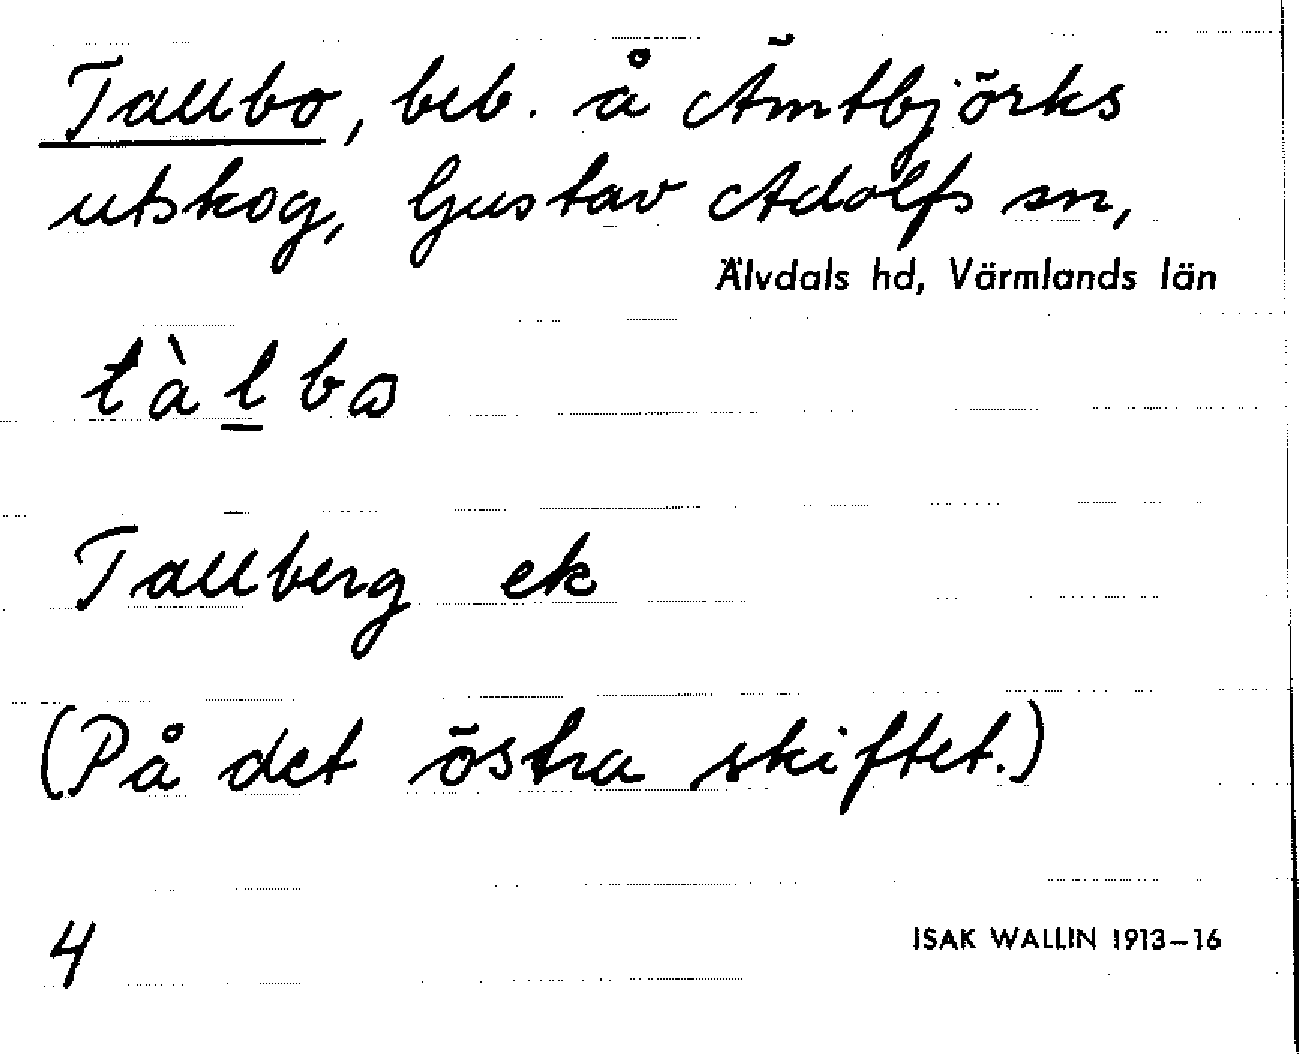 Tallbo, beb. å Ämtbjörks
utskog, Gustav Adolfs sn,
Älvdals hd, Värmlands län
tàlbɷ
Tallberg ek
(På det östra skiftet.)
4
ISAK WALLIN 1913–16